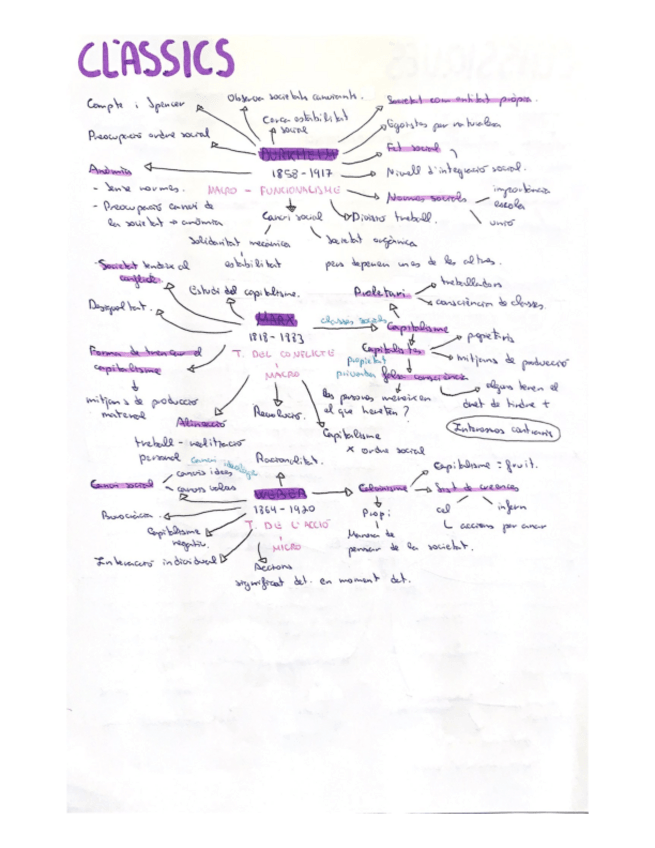 CLÀSSICS
Compte i Spencer
Observa societats canviants.
Cerca estabilitat
social
Societat com entitat pròpia.
Egoistes per naturalesa
Preocupació ordre social
DURKHEIM
Fet social
Anòmia
1858-1917
Nivell d'integració social.
- Sense normes.
MACRO - FUNCIONALISME
Normes socials
importància
escola
unió
- Preocupació canvi de
la societat → anòmia
Canvi social
Divisió treball.
Solidaritat mecànica
Societat orgànica
estabilitat
pers depenen unes de les altres.
Societat tendeix al
conflicte
Estudi del capitalisme.
Proletari
treballadors
consciència de classes.
Desigualtat.
MARX
classes socials
Capitalisme
1818-1883
Forma de trencar el
capitalisme
T. DEL CONFLICTE
MACRO
Capitalistes
propietaris
mitjans de producció
propietat
privada
falsa consciència
mitjans de producció
material
Les persones mereixen
el que hereten?
alguns tenen el
dret de tindre +
Interessos contraris
Alienació
Revolució.
Capitalisme
x ordre social
treball - realització
personal
Racionalitat.
Canvi ideologia
Canvi social
canvis idees
canvis valors
WEBER
1864-1920
Calvinisme
Capitalisme = fruit.
Sist de creences
Burocràcia
T. DE L'ACCIÓ
MICRO
Propi
cel
infern
accions per anar
Capitalisme
negatiu.
Manera de
pensar de la societat.
Interacció individual
Accions
significat det. en moment det.